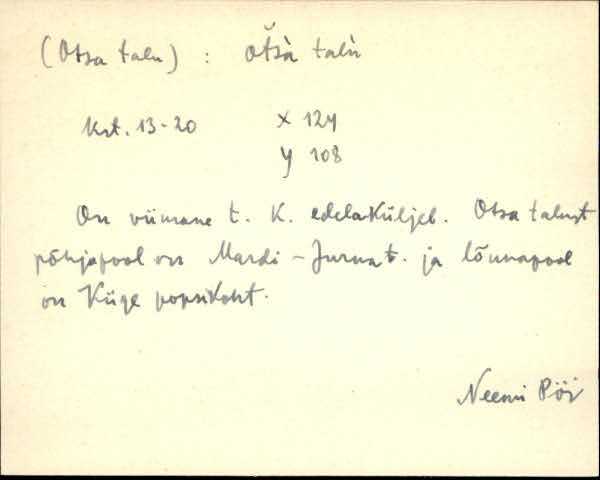 (Otsa talu) : ot̆sà talù
Krt. 13-20 X 124
y 108
On viimane t. K. edelaküljeb. Otsa talust
põhjapool on Mardi - Jurna t. ja lõunapool
on Kiige popsikoht.
Neemi Pöi